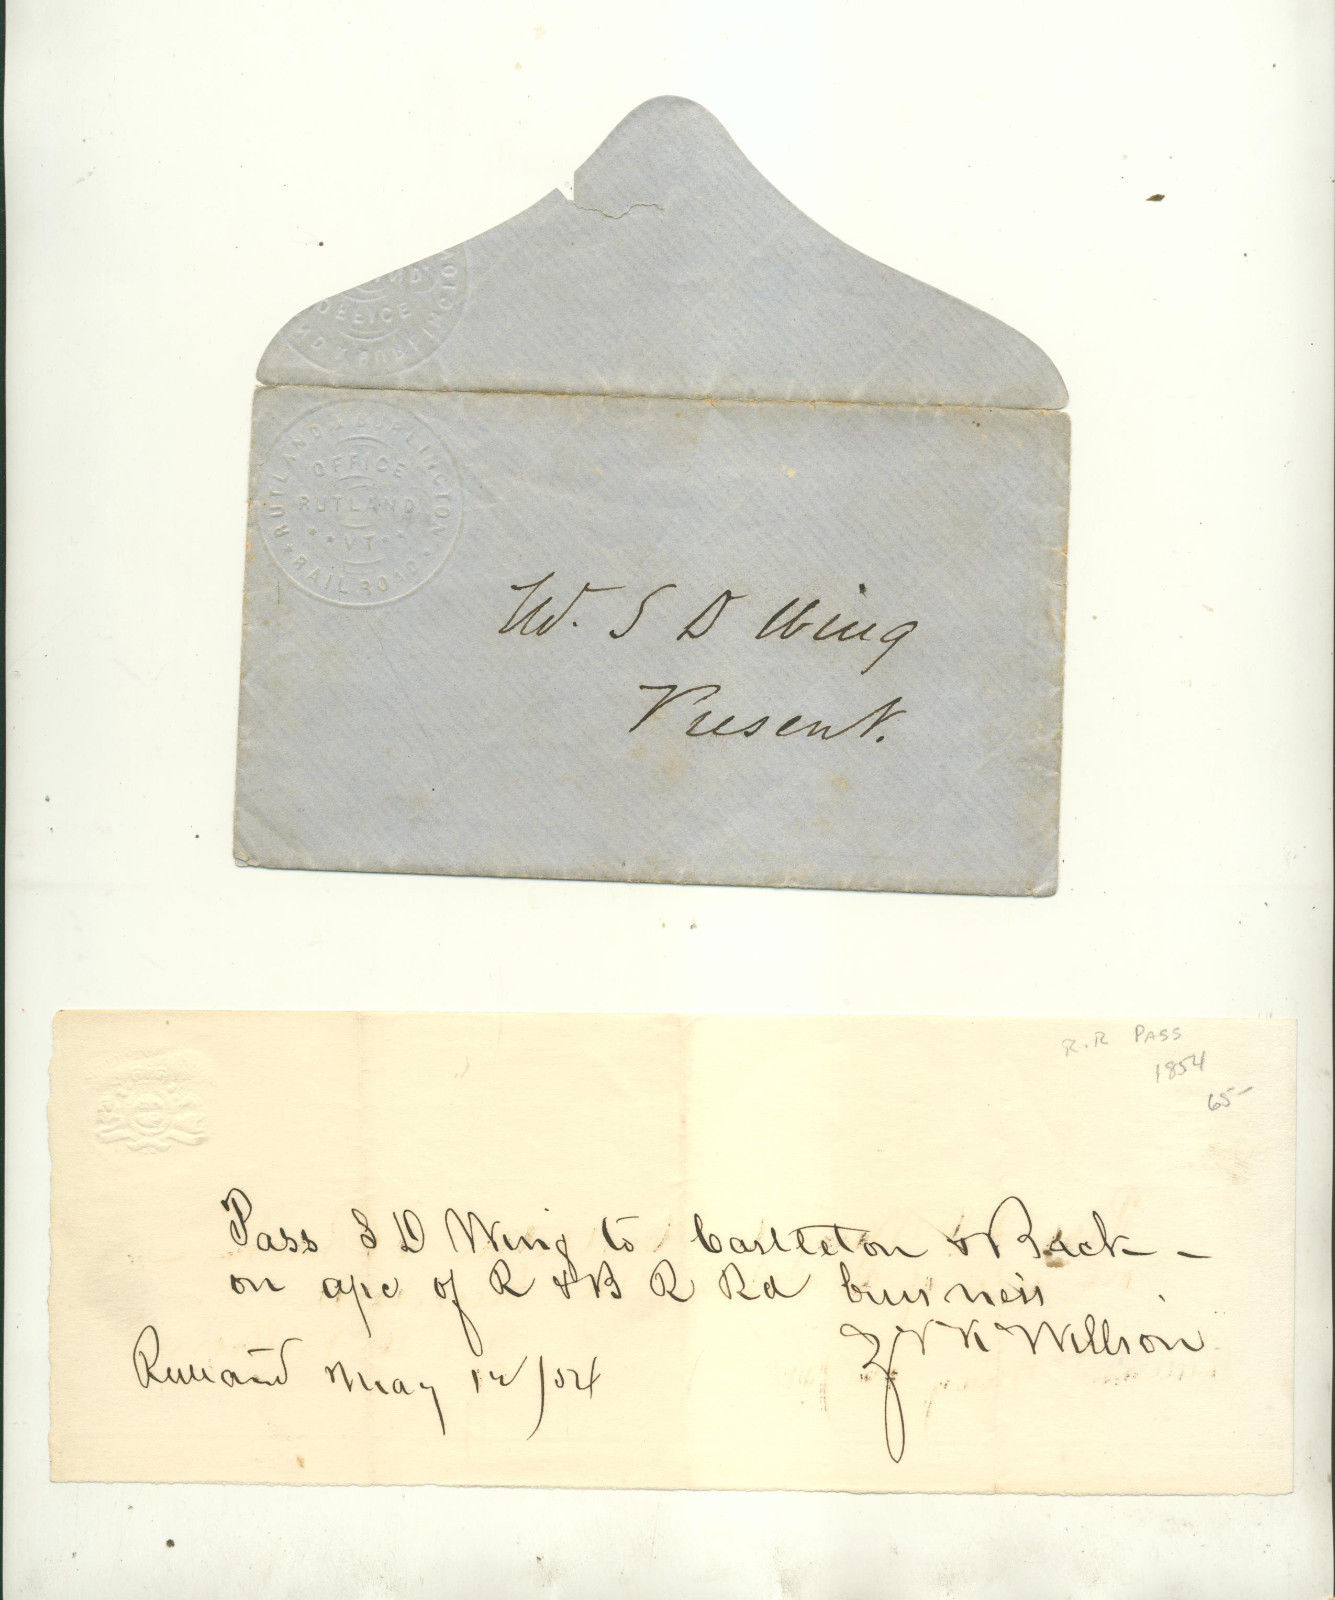 RUTLAND & BURLINGTON
OFFICE
RUTLAND
VT
RAILROAD
W. S D Wing
Present.
R.R PASS
1854
65-
Pass S D Wing to Castleton & Back -
on apc of R & B R Rd business
Rutland May 12/54
Willson